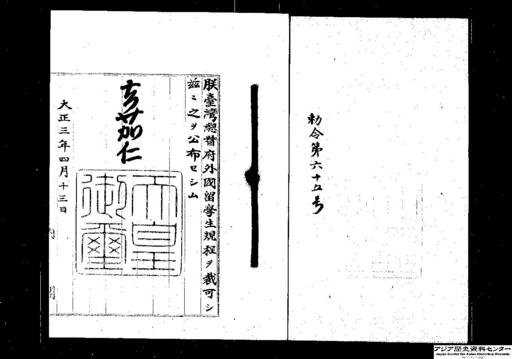 勅令第六十五号
朕臺灣總督府外國留學生規程ヲ裁可シ
茲ニ之ヲ公布セシム
嘉仁
大正三年四月十三日
天皇
御璽
アジア歴史資料センター
Japan Center for Asian Historical Records